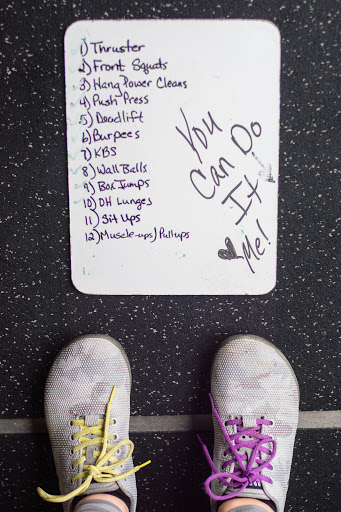 1) Thruster
2) Front Squats
3) Hang Power Cleans
4) Push Press
5) Deadlift
6) Burpees
7) KBS
8) Wall Balls
9) Box Jumps
10) OH Lunges
11) Sit Ups
12) Muscle-ups/Pullups
You
Can Do
It
♥ Me!